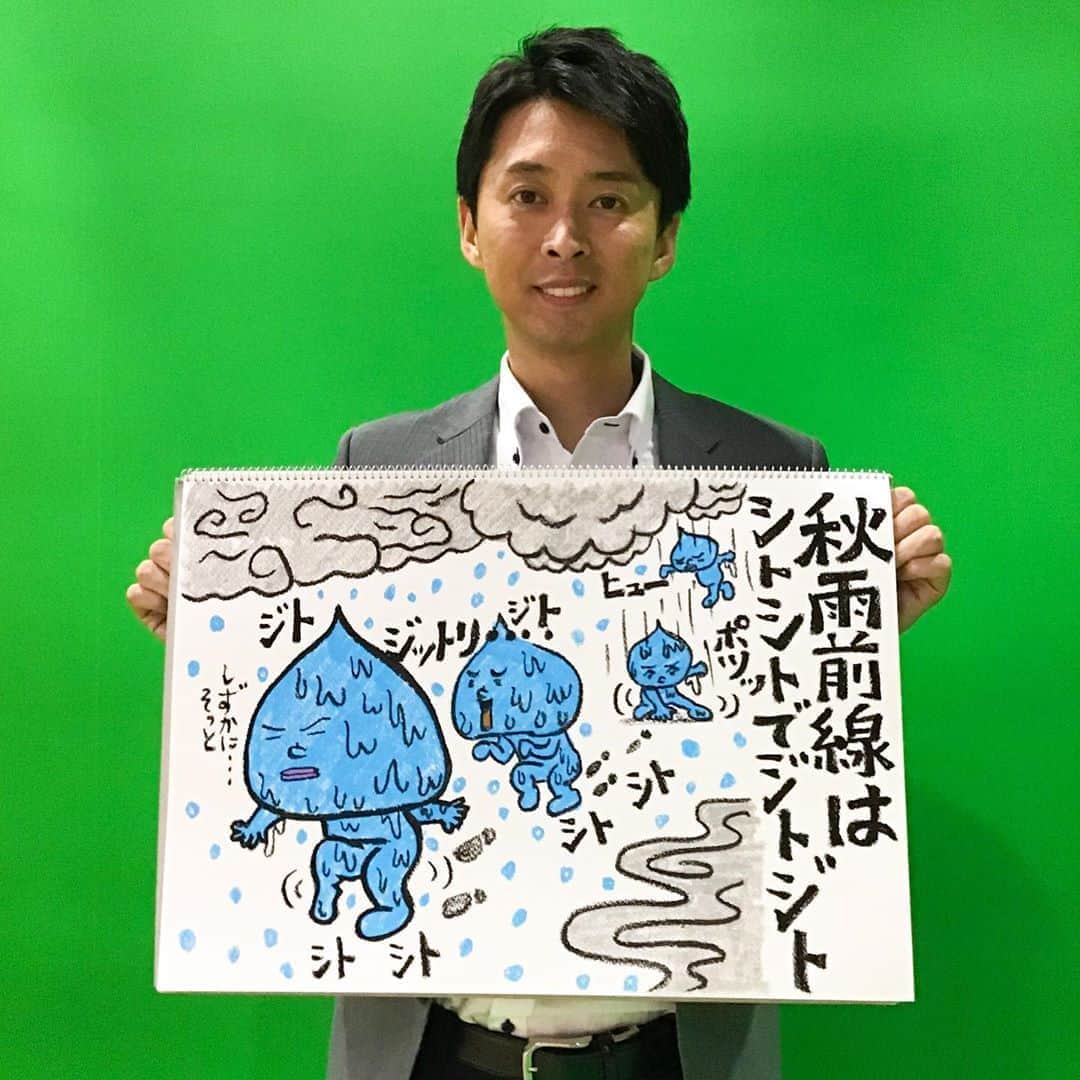 秋雨前線は
シトシトでジトジト
ヒュー
ポツッ
ジト
ジットリ・・・
ジト
しずかに・・・
そっと
シト
シト
シト
シト